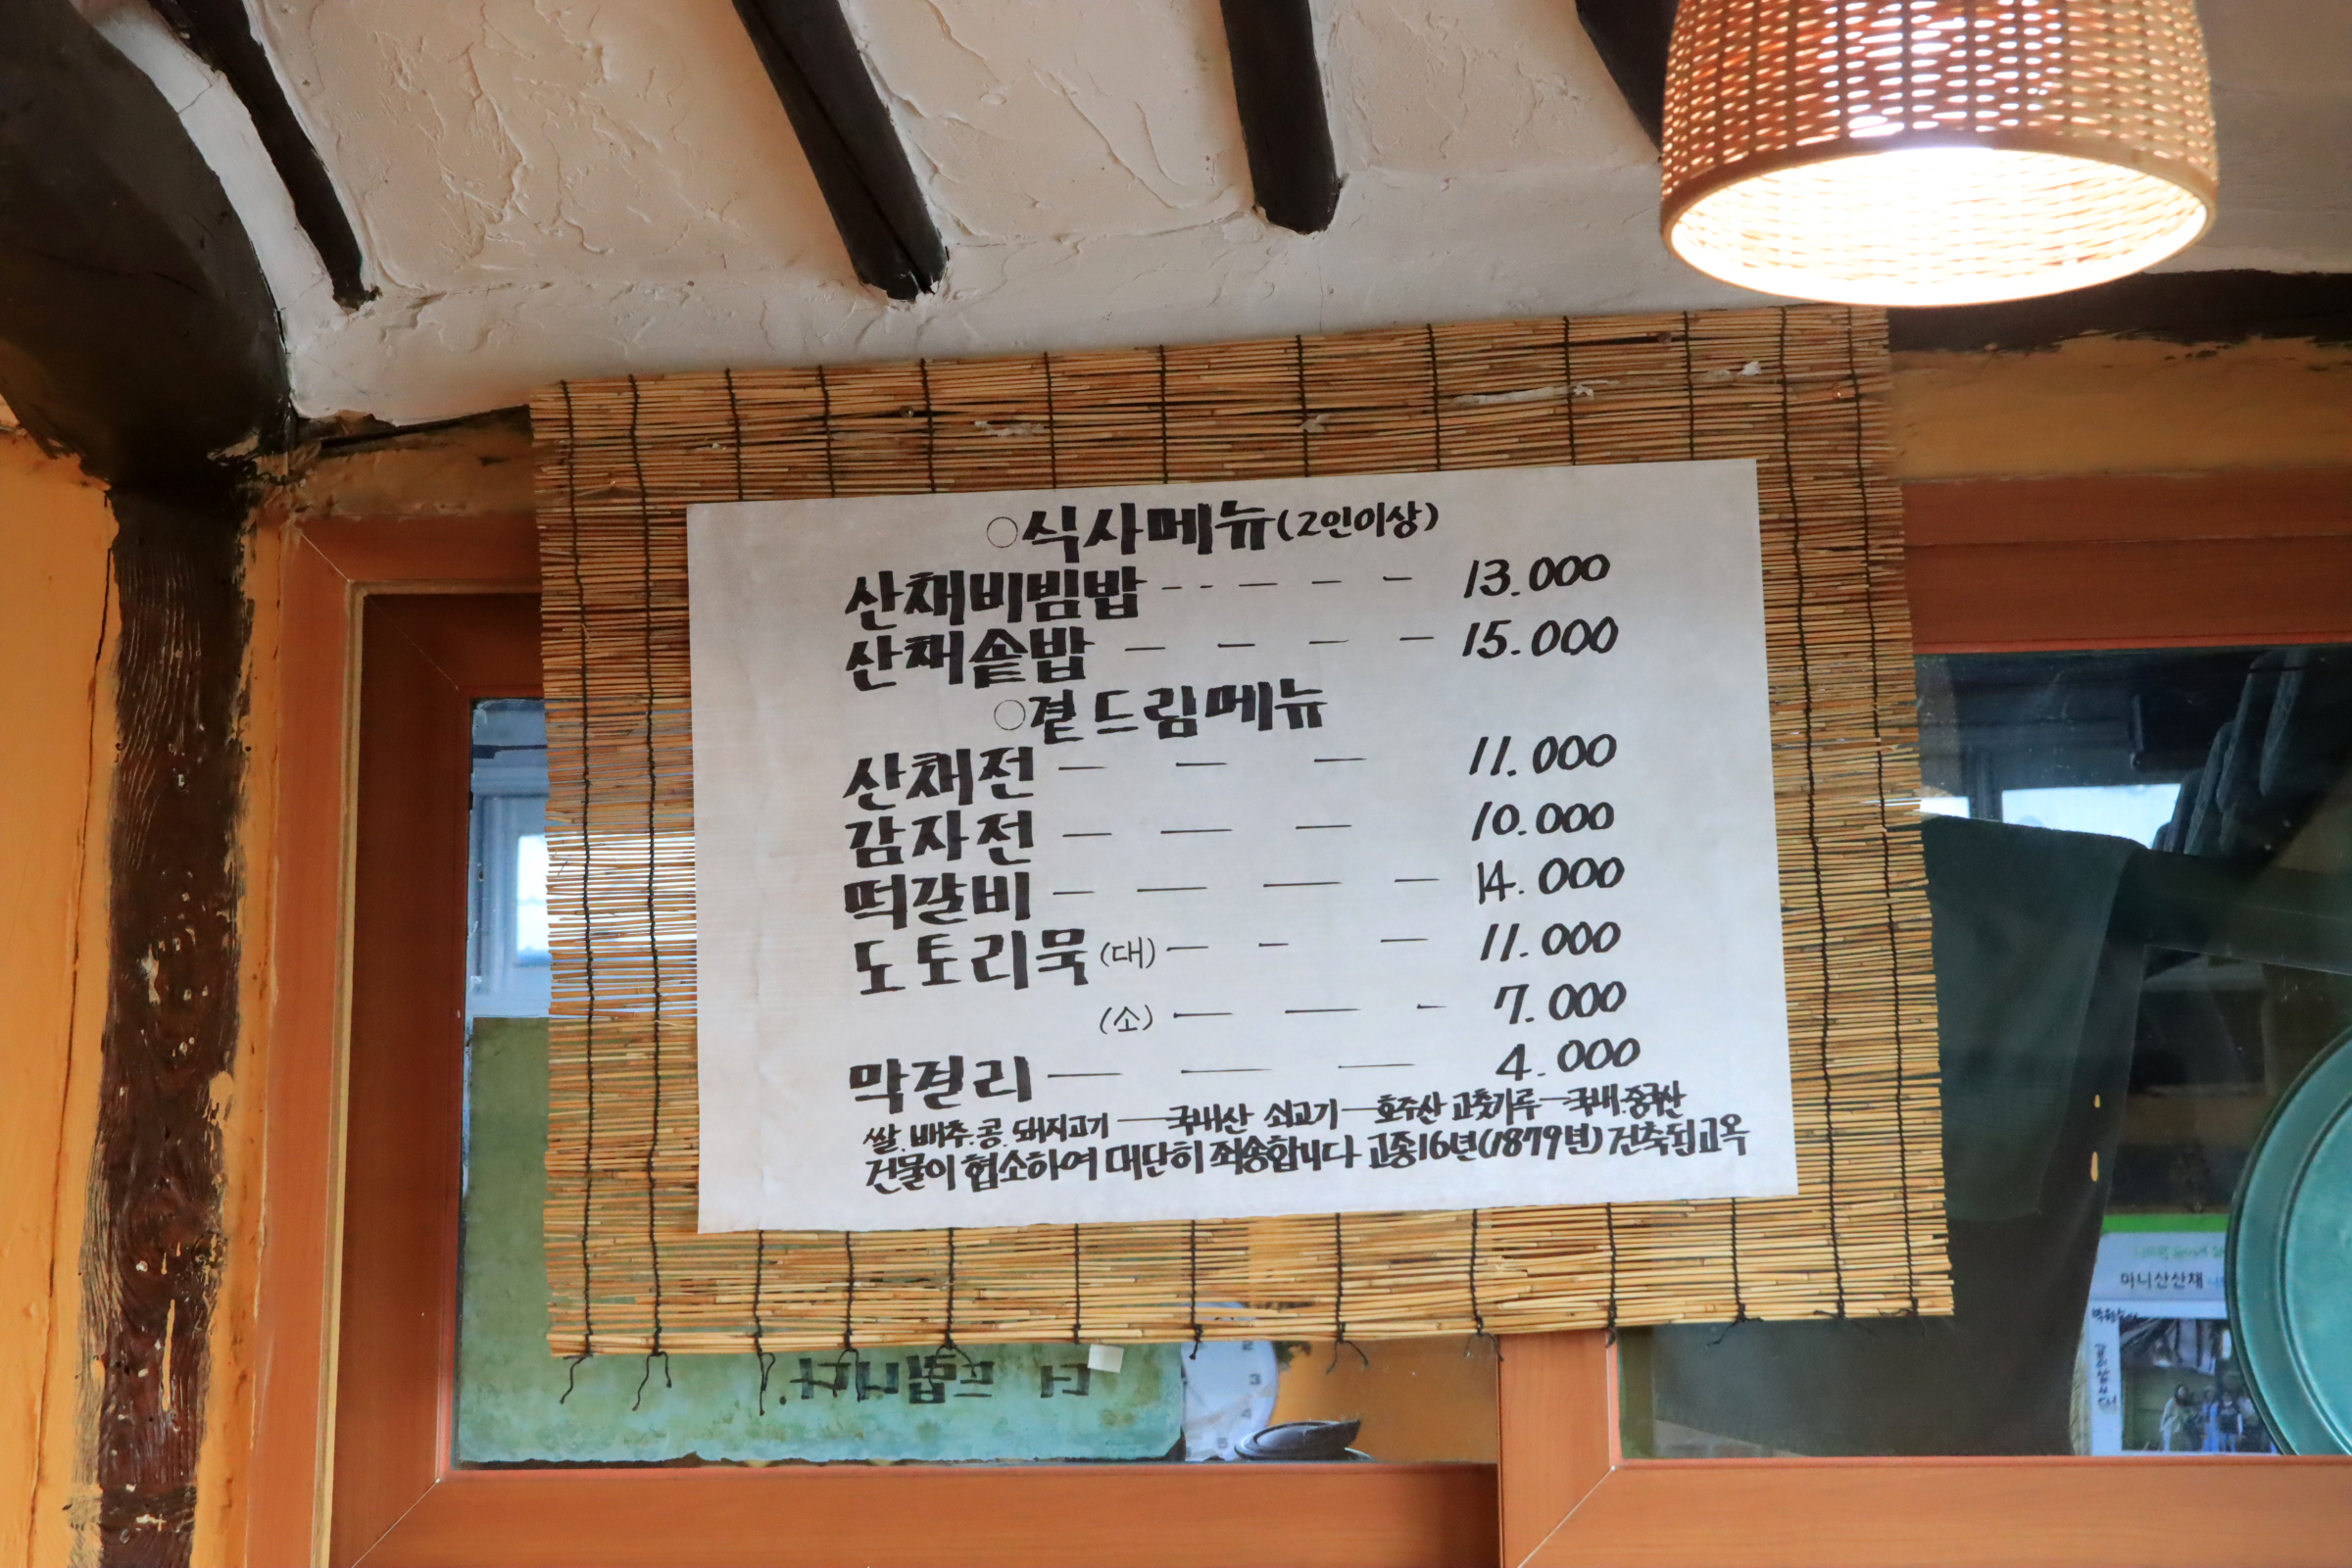 ○식사메뉴(2인이상)
산채비빔밥 - - - - - 13.000
산채솥밥 - - - - 15.000
○곁드림메뉴
산채전 - - - 11.000
감자전 - - - 10.000
떡갈비 - - - - 14.000
도토리묵(대) - - - 11.000
(소) - - - 7.000
막걸리 - - - 4.000
쌀.배추.콩.돼지고기 - 국내산 쇠고기 - 호주산 고춧가루 - 국내.중국산
건물이 협소하여 대단히 죄송합니다 고종16년(1879년) 건축된고옥
마니산산채
2
3
4
5